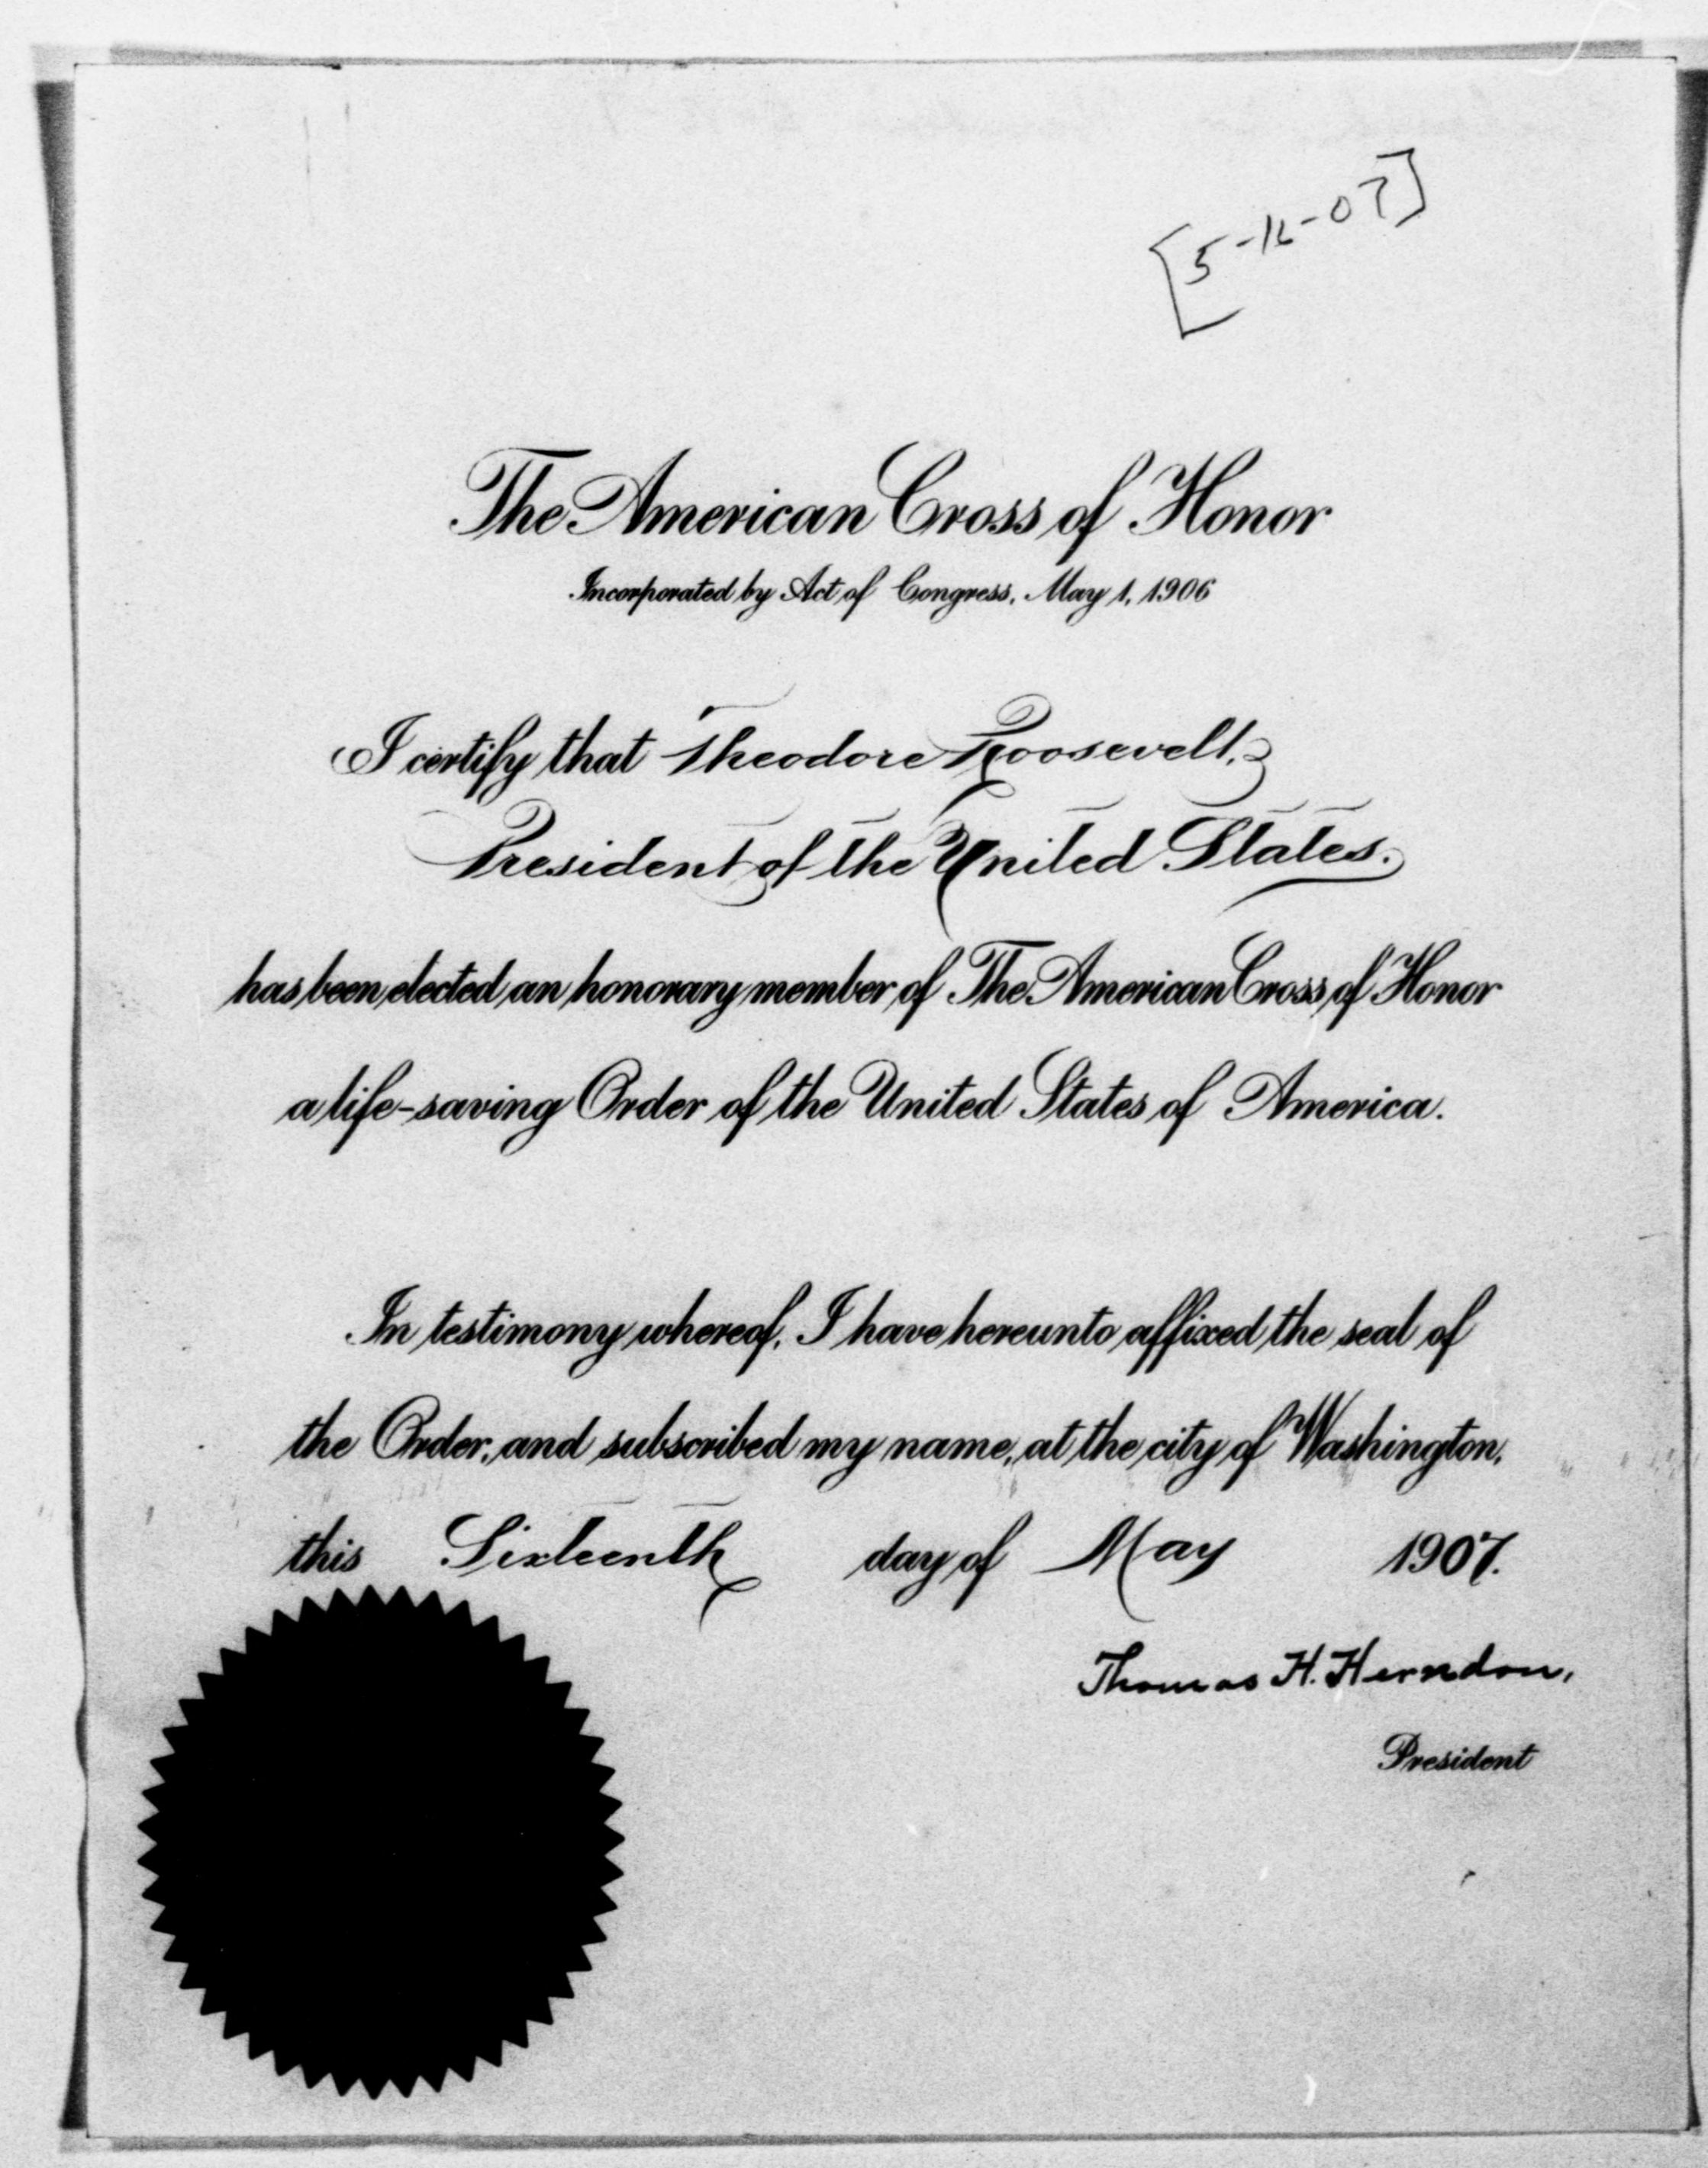 [5-16-07]
The American Cross of Honor
Incorporated by Act of Congress, May 1, 1906
I certify that Theodore Roosevelt,
President of the United States.
has been elected an honorary member of The American Cross of Honor
a life-saving Order of the United States of America.
In testimony whereof, I have hereunto affixed the seal of
the Order, and subscribed my name, at the city of Washington,
this Sixteenth day of May 1907.
Thomas H. Herndon,
President